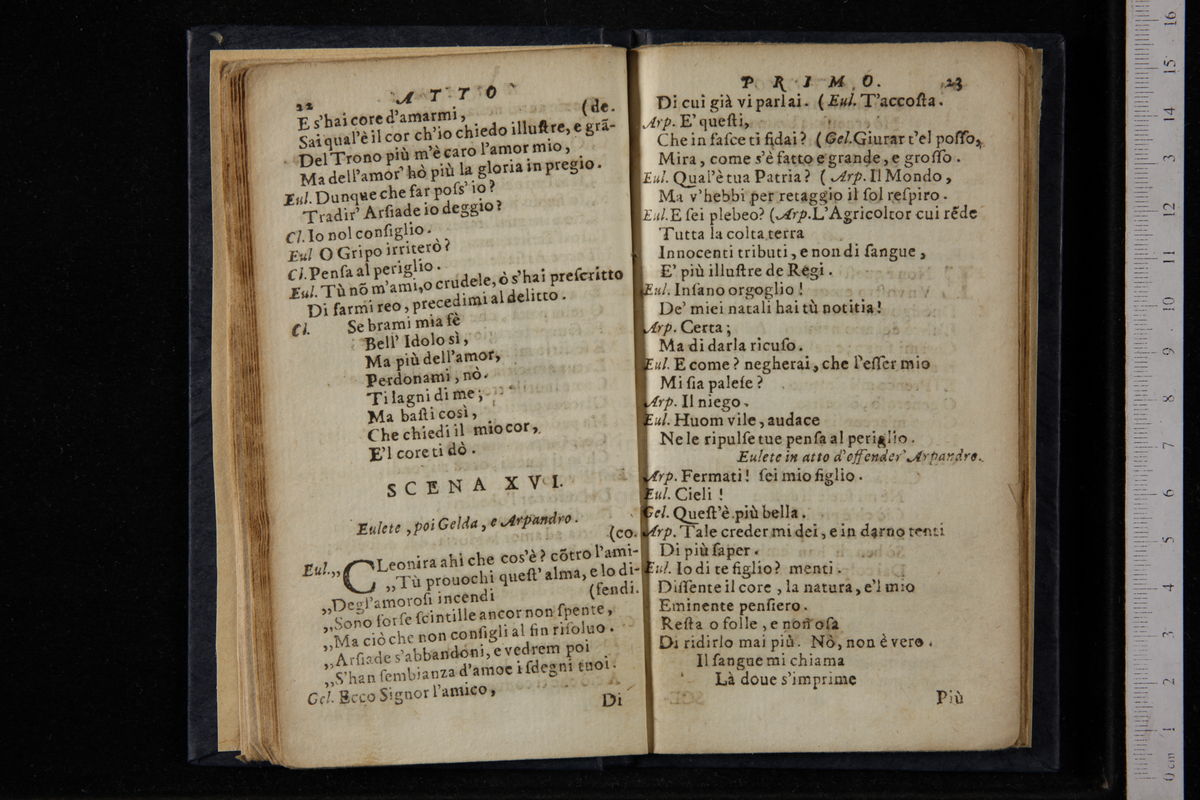 22 ATTO
E s'hai core d'amarmi, (de.
Sai qual'è il cor ch'io chiedo illuſtre, e grã-
Del Trono più m'è caro l'amor mio,
Ma dell'amor' hò più la gloria in pregio.
Eul. Dunque che far poſs' io?
Tradir' Arſiade io deggio?
Cl. Io nol conſiglio.
Eul O Gripo irriterò?
Cl. Penſa al periglio.
Eul. Tù nõ m'ami, o crudele, ò s'hai preſcritto
Di farmi reo, precedimi al delitto.
Cl. Se brami mia fè
Bell' Idolo sì,
Ma più dell'amor,
Perdonami, nò.
Ti lagni di me;
Ma baſti così,
Che chiedi il mio cor,
E'l core ti dò.
SCENA XVI.
Eulete, poi Gelda, e Arpandro.
(co.
Eul.,, CLeonira ahi che cos'è? cõtro l'ami-
,,Tù prouochi queſt' alma, e lo di-
,,Degl'amoroſi incendi (fendi.
,,Sono forſe ſcintille ancor non ſpente,
,,Ma ciò che non conſigli al fin riſoluo.
,,Arſiade s'abbandoni, e vedrem poi
,,S'han ſembianza d'amoe i ſdegni tuoi.
Gel. Ecco Signor l'amico,
Di
PRIMO. 23
Di cui già vi parlai. (Eul. T'accoſta.
Arp. E' queſti,
Che in faſce ti fidai? (Gel. Giurar t'el poſſo,
Mira, come s'è fatto e grande, e groſſo.
Eul. Qual'è tua Patria? (Arp. Il Mondo,
Ma v'hebbi per retaggio il ſol reſpiro.
Eul. E ſei plebeo? (Arp. L'Agricoltor cui rẽde
Tutta la colta terra
Innocenti tributi, e non di ſangue,
E' più illuſtre de Regi.
Eul. Inſano orgoglio!
De' miei natali hai tù notitia!
Arp. Certa;
Ma di darla ricuſo.
Eul. E come? negherai, che l'eſſer mio
Mi ſia paleſe?
Arp. Il niego.
Eul. Huom vile, audace
Ne le ripulſe tue penſa al periglio.
Eulete in atto d'offender' Arpandro.
Arp. Fermati! ſei mio figlio.
Eul. Cieli!
Gel. Queſt'è più bella.
Arp. Tale creder mi dei, e in darno tenti
Di più ſaper.
Eul. Io di te figlio? menti.
Diſſente il core, la natura, e'l mio
Eminente penſiero.
Reſta o folle, e non oſa
Di ridirlo mai più. Nò, non è vero.
Il ſangue mi chiama
Là doue s'imprime
Più
0 cm 1 2 3 4 5 6 7 8 9 10 11 12 13 14 15 16